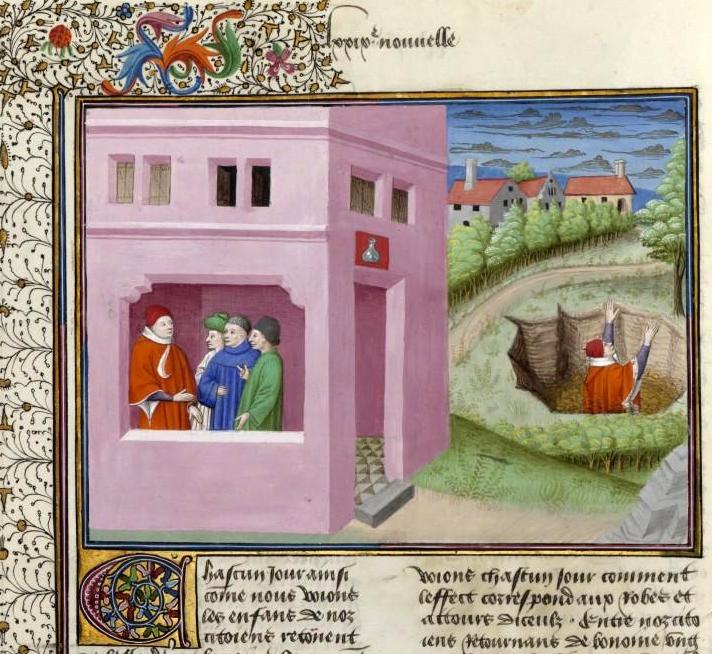 nouvelle
Chascun Jour ainsi
come nous voions
les enfans de noz
citoiens retournent
voions chascun Jour comment
leffect correspond aux robes et
attours diceulx · Entre noz cito
iens Retournans de bonome ung